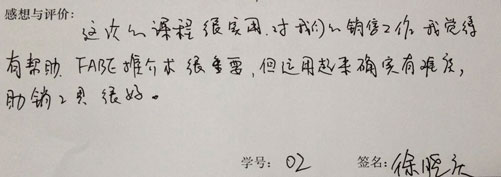 感想与评价:
这次的课程很实用,对我们的销售工作我觉得
有帮助. FABE推介术很重要,但运用起来确实有难度,
助销工具很好。
学号: 02 签名: 徐晓